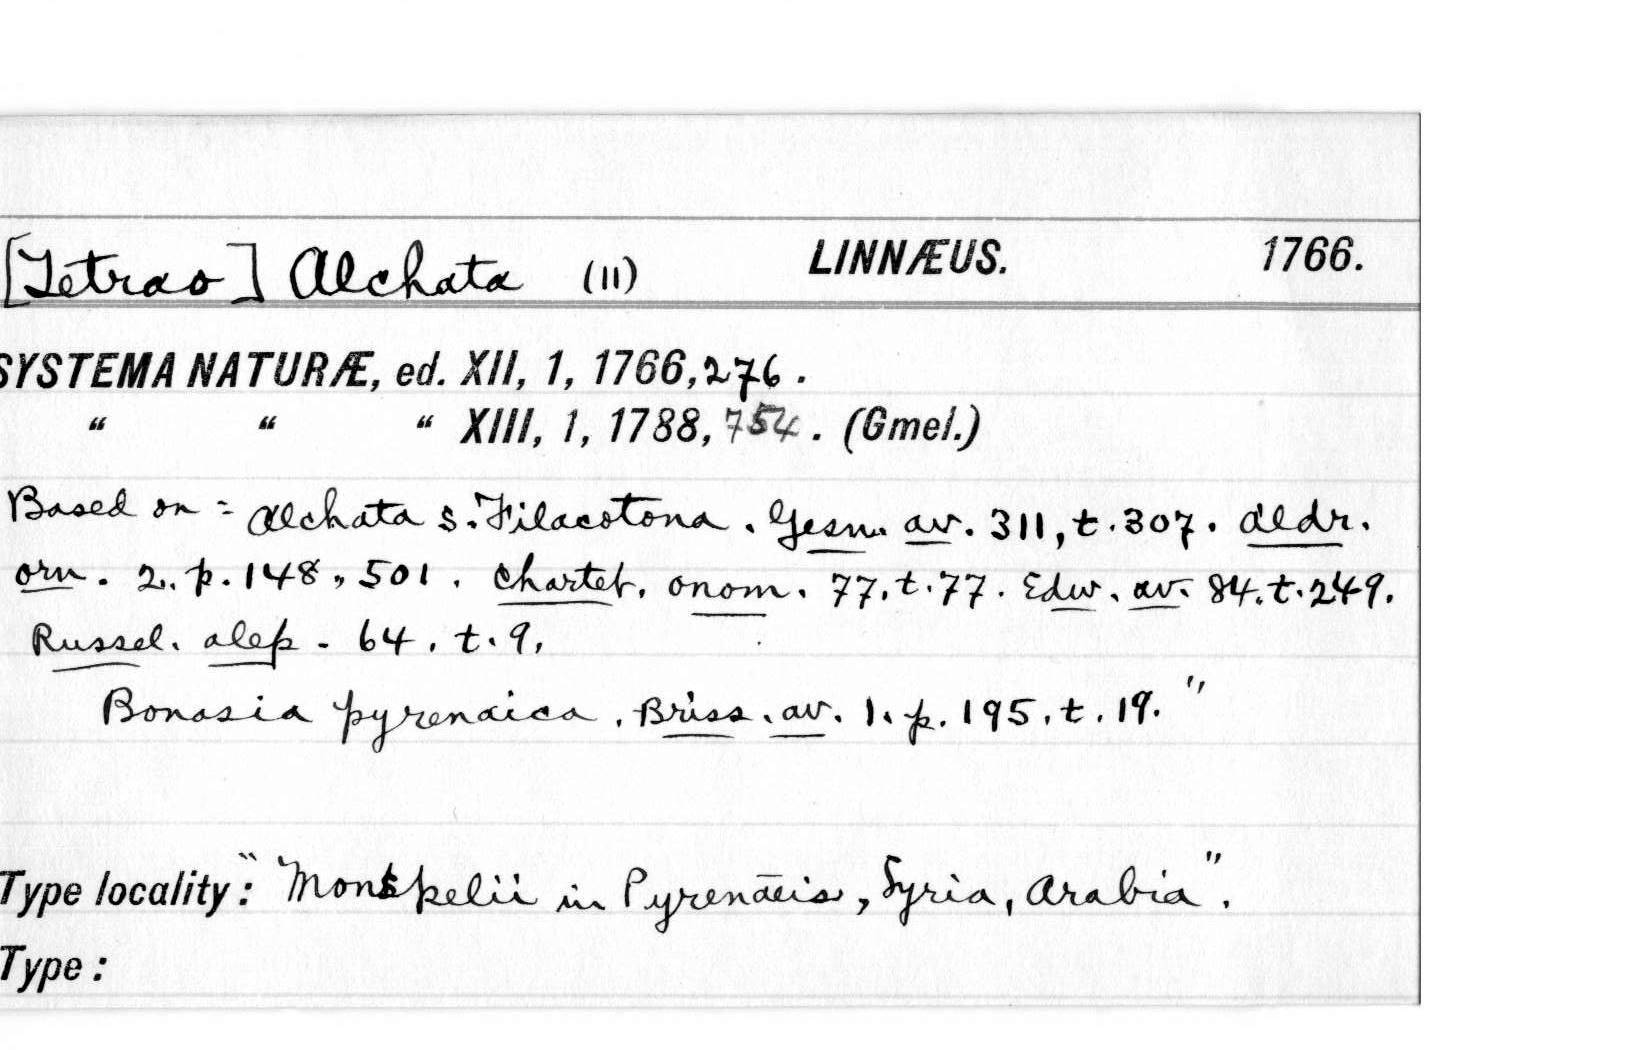 [Tetrao] Alchata (11) LINNÆUS. 1766.
SYSTEMA NATURÆ, ed. XII, 1, 1766, 276.
“ “ “ XIII, 1, 1788, 754. (Gmel.)
Based on = Alchata s. "Filacotona. Gesn. av. 311, t. 307. Aldr.
orn. 2. p. 148, 501. Chartet. onom. 77. t. 77. Edw. av. 84. t. 249.
Russel. alep. 64. t. 9.
Bonasia pyrenaica. Briss. av. 1. p. 195. t. 19."
Type locality: "Monspelii in Pyrenaeis, Syria, Arabia".
Type: